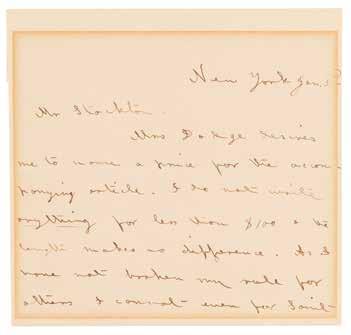 New York Jan. 5
Mr Stockton.
Mrs Dodge desires
me to name a price for the accom-
panying article. I do not write
anything for less than $100 & the
length makes no difference. As I
have not broken my rule for
others I cannot even for Saint